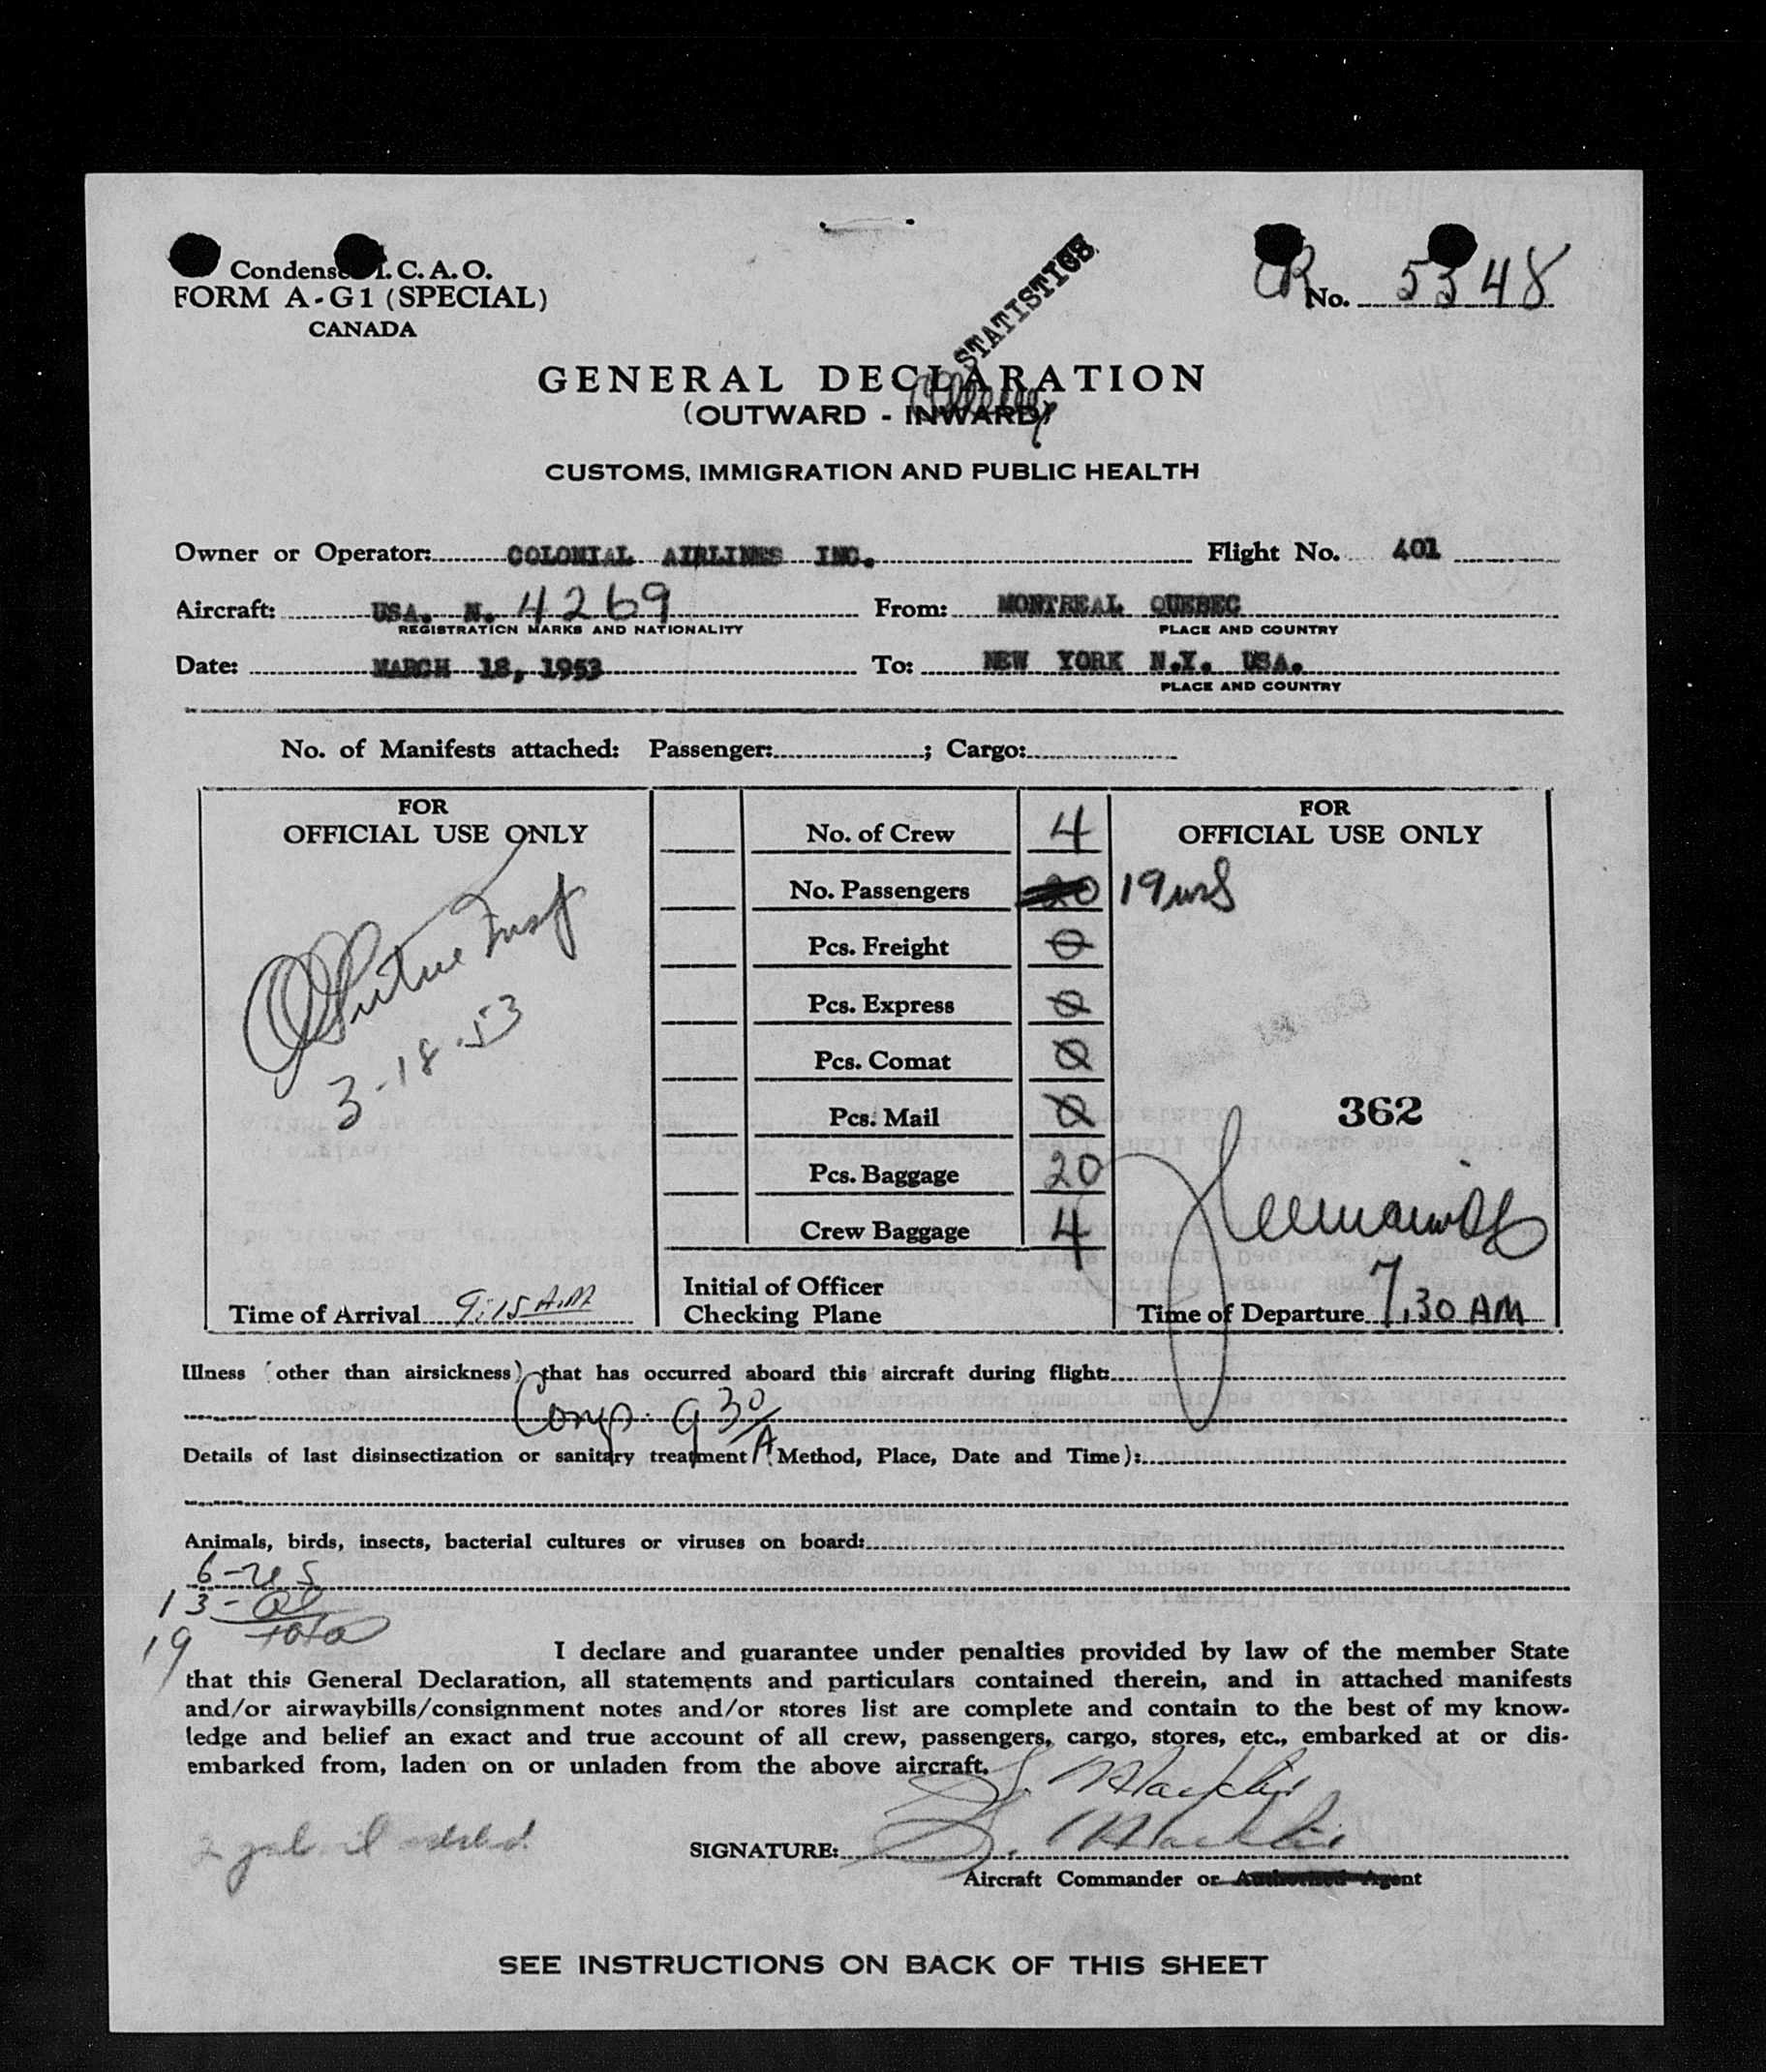 Condensed I.C.A.O.
FORM A-G1 (SPECIAL)
CANADA
No. 5348
STATISTICS
GENERAL DECLARATION
(OUTWARD - INWARD)
CUSTOMS, IMMIGRATION AND PUBLIC HEALTH
Owner or Operator: COLONIAL AIRLINES INC. Flight No. 401
Aircraft: USA. N. 4269 From: MONTREAL QUEBEC
REGISTRATION MARKS AND NATIONALITY PLACE AND COUNTRY
Date: MARCH 18, 1953 To: NEW YORK N.Y. USA.
PLACE AND COUNTRY
No. of Manifests attached: Passenger: ; Cargo:
FOR
OFFICIAL USE ONLY
Insp
3-18-53
Time of Arrival 9:15 A.M
No. of Crew 4
No. Passengers 20 19
Pcs. Freight 0
Pcs. Express 0
Pcs. Comat 0
Pcs. Mail 0
Pcs. Baggage 20
Crew Baggage 4
Initial of Officer
Checking Plane
FOR
OFFICIAL USE ONLY
362
Time of Departure 7.30 AM
Illness (other than airsickness) that has occurred aboard this aircraft during flight:
Comp. 930/A
Details of last disinsectization or sanitary treatment (Method, Place, Date and Time):
Animals, birds, insects, bacterial cultures or viruses on board:
6-US
13-al
19 total
I declare and guarantee under penalties provided by law of the member State
that this General Declaration, all statements and particulars contained therein, and in attached manifests
and/or airwaybills/consignment notes and/or stores list are complete and contain to the best of my know-
ledge and belief an exact and true account of all crew, passengers, cargo, stores, etc., embarked at or dis-
embarked from, laden on or unladen from the above aircraft.
S. Macklin
SIGNATURE: S. Macklin
Aircraft Commander or Authorized Agent
SEE INSTRUCTIONS ON BACK OF THIS SHEET